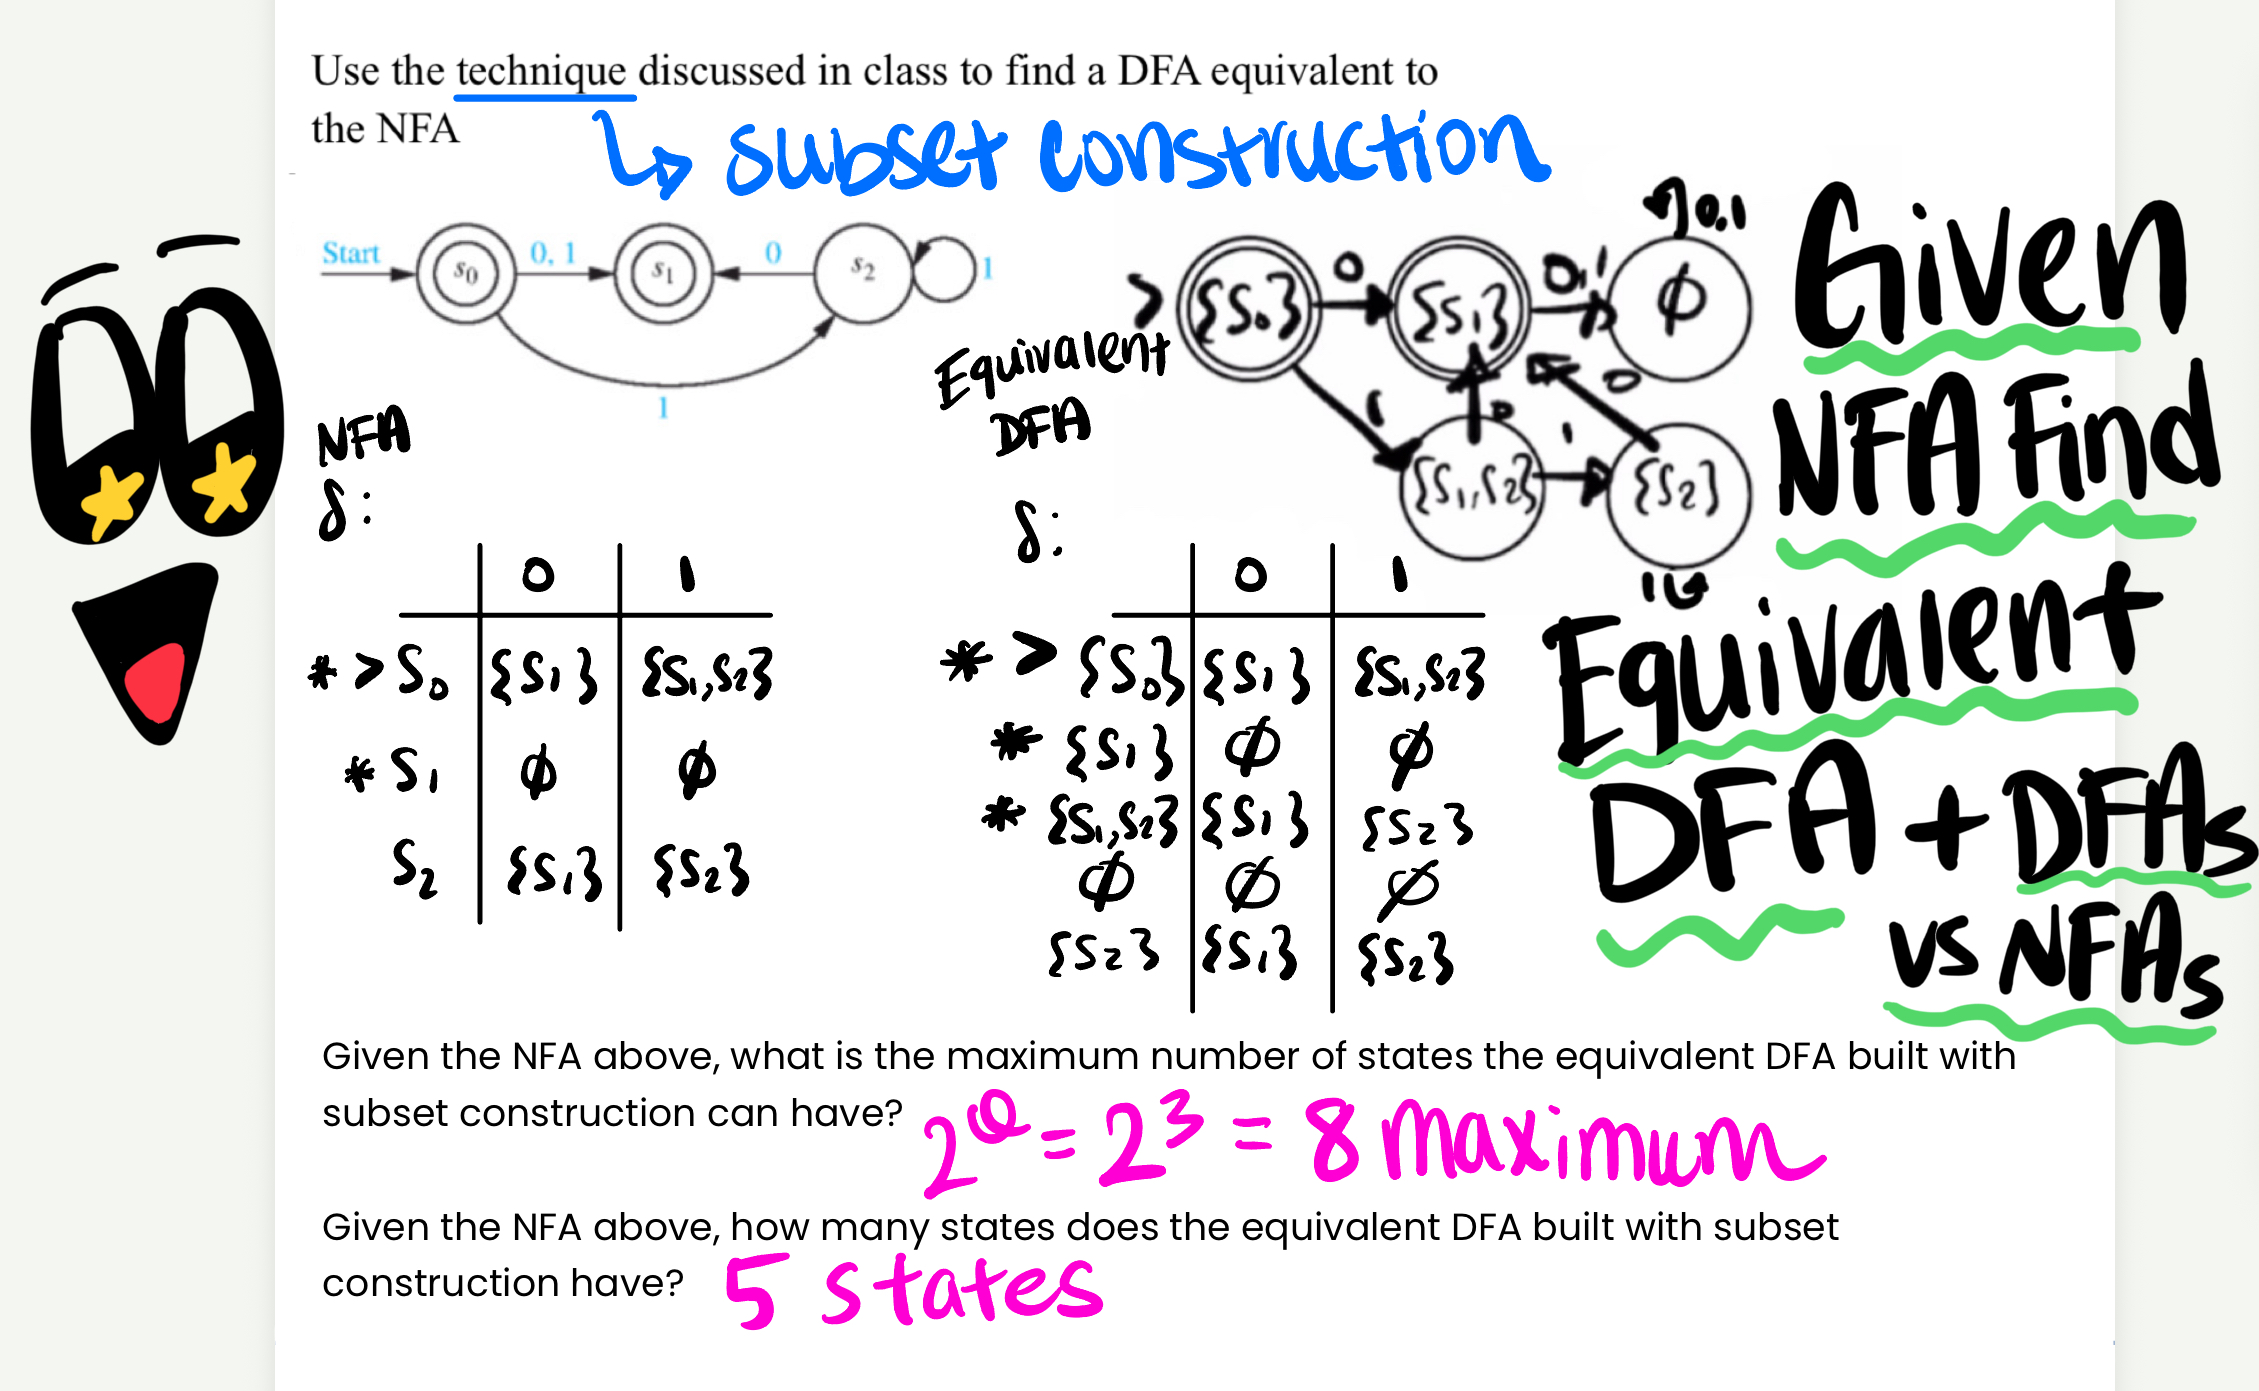 Use the technique discussed in class to find a DFA equivalent to
the NFA
↳ subset construction
Start s0 0, 1 s1 0 s2 1
1
NFA
δ:
0 1
* > S0 {S1} {S1,S2}
* S1 ϕ ϕ
S2 {S1} {S2}
Equivalent
DFA
> {S0} 0 {S1} 0,1 ϕ 0,1
1 0 0
{S1,S2} 1 {S2}
1
δ:
0 1
* > {S0} {S1} {S1,S2}
* {S1} ϕ ϕ
* {S1,S2} {S1} {S2}
ϕ ϕ ϕ
{S2} {S1} {S2}
Given
NFA Find
Equivalent
DFA + DFAs
vs NFAs
Given the NFA above, what is the maximum number of states the equivalent DFA built with
subset construction can have? 2^Q = 2^3 = 8 maximum
Given the NFA above, how many states does the equivalent DFA built with subset
construction have? 5 states